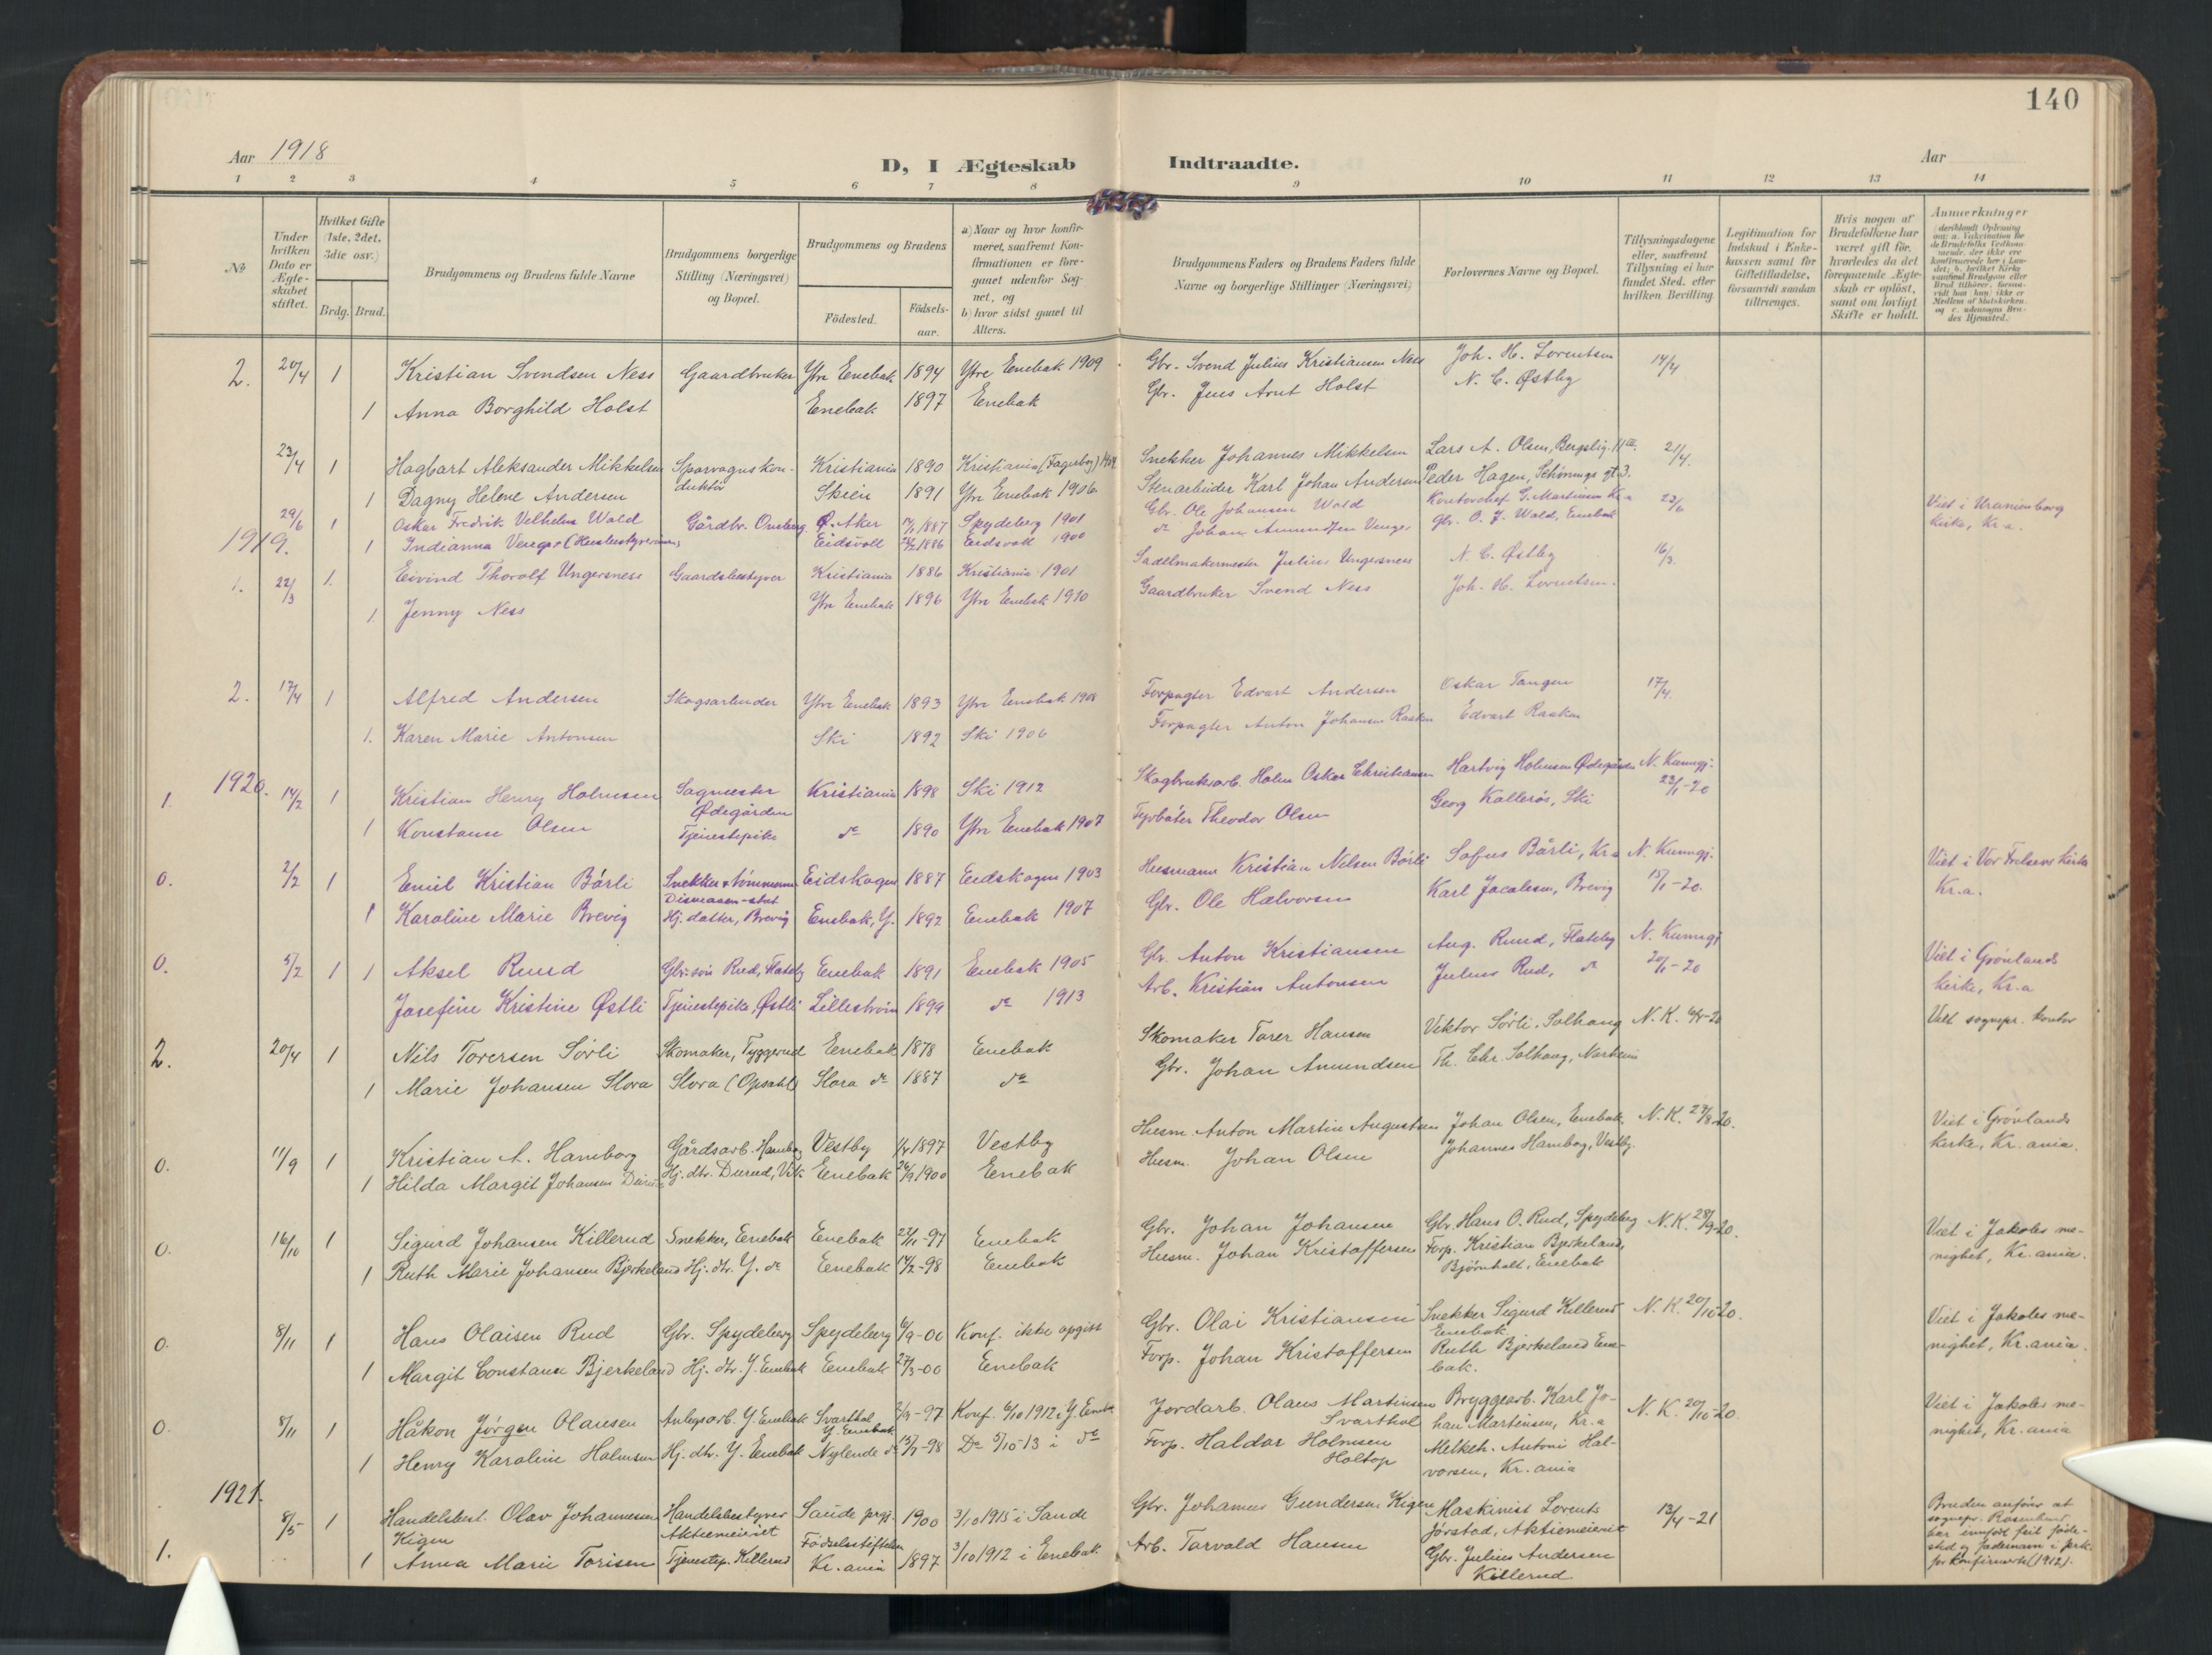 140
Aar 1918
D, I Ægteskab Indtraadte.
Aar
1 2 3 4 5 6 7 8 9 10 11 12 13 14
No
Under hvilken Dato er Ægteskabet stiftet.
Hvilket Gifte (1ste, 2det, 3die osv.)
Brdg. Brud.
Brudgommens og Brudens fulde Navne
Brudgommens borgerlige Stilling (Næringsvei) og Bopæl.
Brudgommens og Brudens
Fødested.
Fødselsaar.
a) Naar og hvor konfirmeret, saafremt Konfirmationen er foregaaet udenfor Sognet, og
b) hvor sidst gaaet til Alters.
Brudgommens Faders og Brudens Faders fulde Navne og borgerlige Stillinger (Næringsvei)
Forlovernes Navne og Bopæl.
Tillysningsdagene eller, saafremt Tillysning ei har fundet Sted, efter hvilken Bevilling.
Legitimation for Indskud i Enkekassen samt for Giftetilladelse, forsaavidt saadan tiltrænges.
Hvis nogen af Brudefolkene har været gift før, hvorledes da det foregaaende Ægteskab er opløst, samt om lovligt Skifte er holdt.
Anmærkninger
2. 20/4 1 Kristian Svendsen Ness Gaardbruker Ytre Enebak 1894 Ytre Enebak 1909 Gbr. Svend Julius Kristiansen Ness Joh. H. Lorentsen 14/4
1 Anna Borghild Holst Enebak 1897 Enebak Gbr. Jens Arnt Holst N. C. Østby
23/4 1 Hagbart Aleksander Mikkelsen Sporvognskonduktør Kristiania 1890 Kristiania (Fagerborg) Snekker Johannes Mikkelsen Lars A. Olsen, 21/4.
1 Dagny Helene Andersen Skien 1891 Ytre Enebak 1906 Stenarbeider Karl Johan Andersen Peder Hagen, Schønings gt 3.
29/6 1 Oskar Fredrik Velhelm Wold Gårdbr. Ø. Aker 1887 Spydeberg 1901 Gbr. Ole Johansen Wold Kontorchef G. Martinsen Kr.a 23/6 Viet i Uranienborg kirke, Kr.a.
1919.
1 Indianna Venger Eidsvoll 1886 Eidsvoll 1900 do Johan Amundsen Venger Gbr. O. J. Wold, Enebak
1. 22/3 1. Eivind Thorolf Ungersness Gaardsbestyrer Kristiania 1886 Kristiania 1901 Sadelmakermester Julius Ungersness N. C. Østby 16/3.
1 Jenny Ness Ytre Enebak 1896 Ytre Enebak 1910 Gaardbruker Svend Ness Joh. H. Lorentsen.
2. 17/4 1 Alfred Andersen Skogsarbeider Ytre Enebak 1893 Ytre Enebak 1908 Forpagter Edvart Andersen Oskar Tangen 17/4.
1. Karen Marie Antonsen Ski 1892 Ski 1906 Forpagter Anton Johansen Rasken Edvart Rasken
1920.
1. 14/2 1 Kristian Henry Holmsen Sagmester Ødegården Kristiania 1898 Ski 1912 Skogbruksarb. Holm Oskar Christiansen Hartvig Holmsen Ødegården N. Kunngj. 23/1-20
1 Konstanse Olsen Tjenestepike do 1890 Ytre Enebak 1907 Fyrbøter Theodor Olsen Georg Kollerøs, Ski
0. 2/2 1 Emil Kristian Bårli Snekker & tømmermann Eidskogen 1887 Eidskogen 1903 Husmann Kristian Nilsen Børli Sofus Bårli, Kr.a N. Kunngj. 15/1-20. Viet i Vor Frelsers kirke Kr.a.
1 Karoline Marie Brevig Hj. datter, Brevig Enebak, Y. 1892 Enebak 1907 Gbr. Ole Halvorsen Karl Jacobsen, Brevig
0. 5/2 1 1 Aksel Ruud Gbr. søn Rud, Flateby Enebak 1891 Enebak 1905 Gbr. Anton Kristiansen Aug. Ruud, Flateby N. Kunngj 20/1-20 Viet i Grønlands kirke, Kr.a
Josefine Kristine Østli Tjenestepike, Østli Lillestrøm 1899 do 1913 Arb. Kristian Antonsen Julius Rud, do
2. 20/4 1 Nils Torersen Sørli Skomaker, Tyggerud Enebak 1878 Enebak Skomaker Torer Hansen Viktor Sørli, Solhaug N. K. Viet sognepr. kontor
1 Marie Johansen Slora Slora (Opsahl) Slora do 1887 do Gbr. Johan Amundsen Th. Chr. Solhaug, Norheim
0. 11/9 1 Kristian A. Hamborg Gårdsarb. Hamborg Vestby 1897 Vestby Husm. Anton Martin Augustsen Johan Olsen, Enebak N. K. 27/8-20. Viet i Grønlands kirke, Kr.ania.
1 Hilda Margit Johansen Durud Hj. dtr. Durud, Vik Enebak 26/9 1900 Enebak Husm. Johan Olsen Johannes Hamborg, Vestby.
0. 16/10 1 Sigurd Johansen Killerud Snekker, Enebak Enebak 23/11-97 Enebak Gbr. Johan Johansen Gbr. Hans O. Rud, Spydeberg N. K. 28/9-20. Viet i Jakobs menighet, Kr.ania.
1 Ruth Marie Johansen Bjerkeland Hj. dtr. Y. do Enebak 14/2-98 Enebak Husm. Johan Kristoffersen Forp. Kristian Bjerkeland, Bjørnholt, Enebak
0. 8/11 1 Hans Olaisen Rud Gbr. Spydeberg Spydeberg 6/9-00 Konf. ikke opgitt Gbr. Olai Kristiansen Snekker Sigurd Killerud Enebak N. K. 20/10-20. Viet i Jakobs menighet, Kr.ania.
1 Margit Constanse Bjerkeland Hj. dtr. Y. Enebak Enebak 27/3-00 Enebak Forp. Johan Kristoffersen Ruth Bjerkeland Enebak.
0. 8/11 1 Håkon Jørgen Olausen Anlegsarb. Y. Enebak Svarthol Y. Enebak 2/9-97 Konf. 6/10 1912 i Y. Enebak Jordarb. Olaus Martinsen Svarthol Bryggearb. Karl Johan Martinsen, Kr.a N. K. 20/10-20. Viet i Jakobs menighet, Kr.ania
1 Henry Karoline Holmsen Hj. dtr. Y. Enebak Nylende do 15/7-98 Do 5/10-13 i do Forp. Haldor Holmsen Holtop Melkeh. Antoni Halvorsen, Kr.ania
1921.
1. 8/5- 1 Handelsbest. Olav Johannesen Kigen Handelsbestyrer Aktiemeieriet Saude prgj. 1900 3/10 1915 i Sande Gbr. Johannes Gundersen Kigen Maskinist Lorents Jørstad, Aktiemeieriet 13/4-21 Bruden anfører at sognepr. har innført feil fødested og fadernavn i for konfirmerte (1912).
1 Anna Marie Torisen Tjenestep. Killerud Fødselsstiftelsen Kr.ania 1897 3/10 1912 i Enebak Arb. Torvald Hansen Gbr. Julius Andersen Killerud